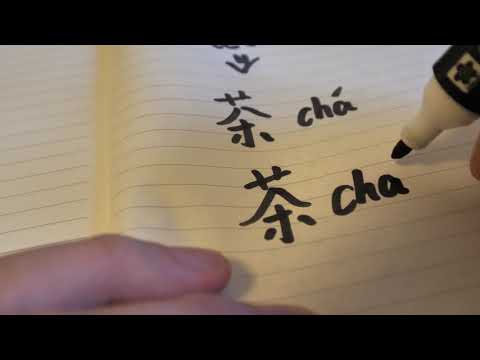 茶 chá
茶 cha